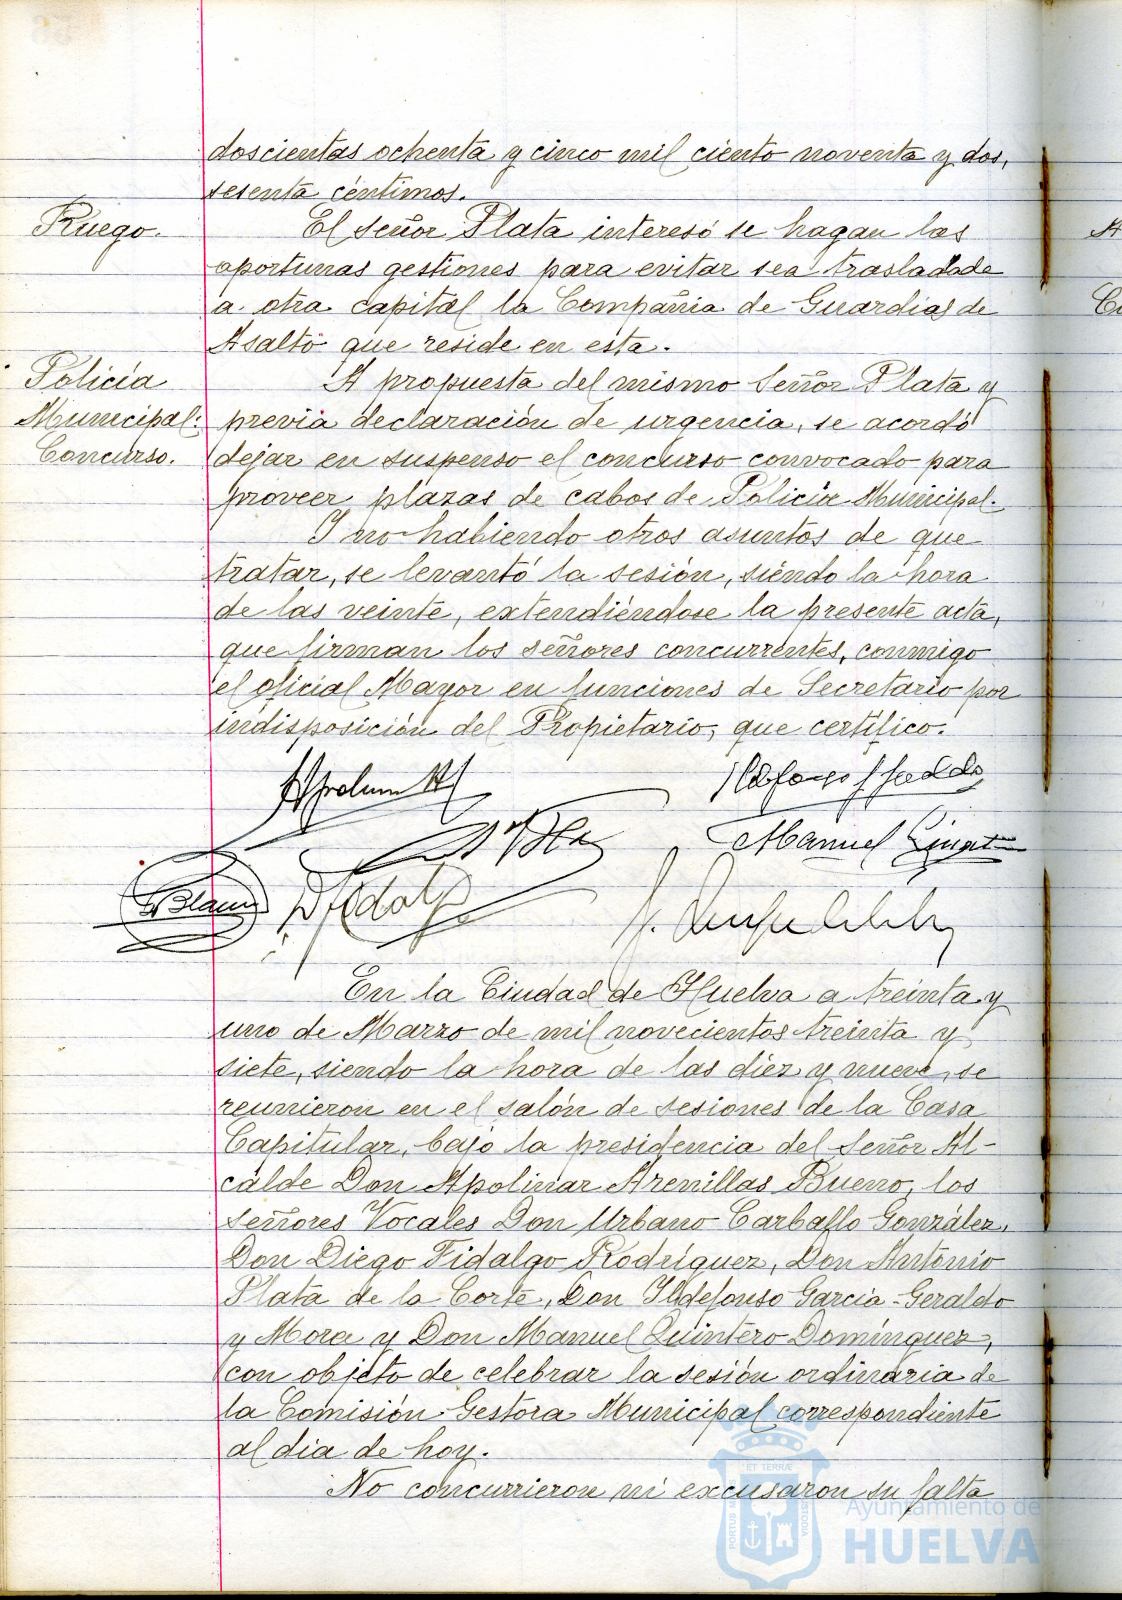 doscientas ochenta y cinco mil ciento noventa y dos,
sesenta céntimos.
Ruego.
El señor Plata interesó se hagan las
oportunas gestiones para evitar sea trasladada
a otra capital la Compañia de Guardias de
Asalto que reside en esta.
Policía
Municipal:
Concurso.
A propuesta del mismo Señor Plata y
previa declaración de urgencia, se acordó
dejar en suspenso el concurso convocado para
proveer plazas de cabos de Policía Municipal.
Y no habiendo otros asuntos de que
tratar, se levantó la sesión, siendo la hora
de las veinte, extendiéndose la presente acta,
que firman los señores concurrentes, conmigo
el oficial Mayor en funciones de Secretario por
indisposición del Propietario, que certifico.
Manuel
En la Ciudad de Huelva a treinta y
uno de Marzo de mil novecientos treinta y
siete, siendo la hora de las diez y nueve, se
reunieron en el salón de sesiones de la Casa
Capitular, bajo la presidencia del Señor Al-
calde Don Apolinar Arenillas Bueno, los
señores Vocales Don Urbano Carballo González,
Don Diego Fidalgo Rodríguez, Don Antonio
Plata de la Corte, Don Ildefonso García-Geraldo
y Mora y Don Manuel Quintero Domínguez,
con objeto de celebrar la sesión ordinaria de
la Comisión Gestora Municipal correspondiente
al día de hoy.
No concurrieron ni excusaron su falta
Ayuntamiento de
HUELVA